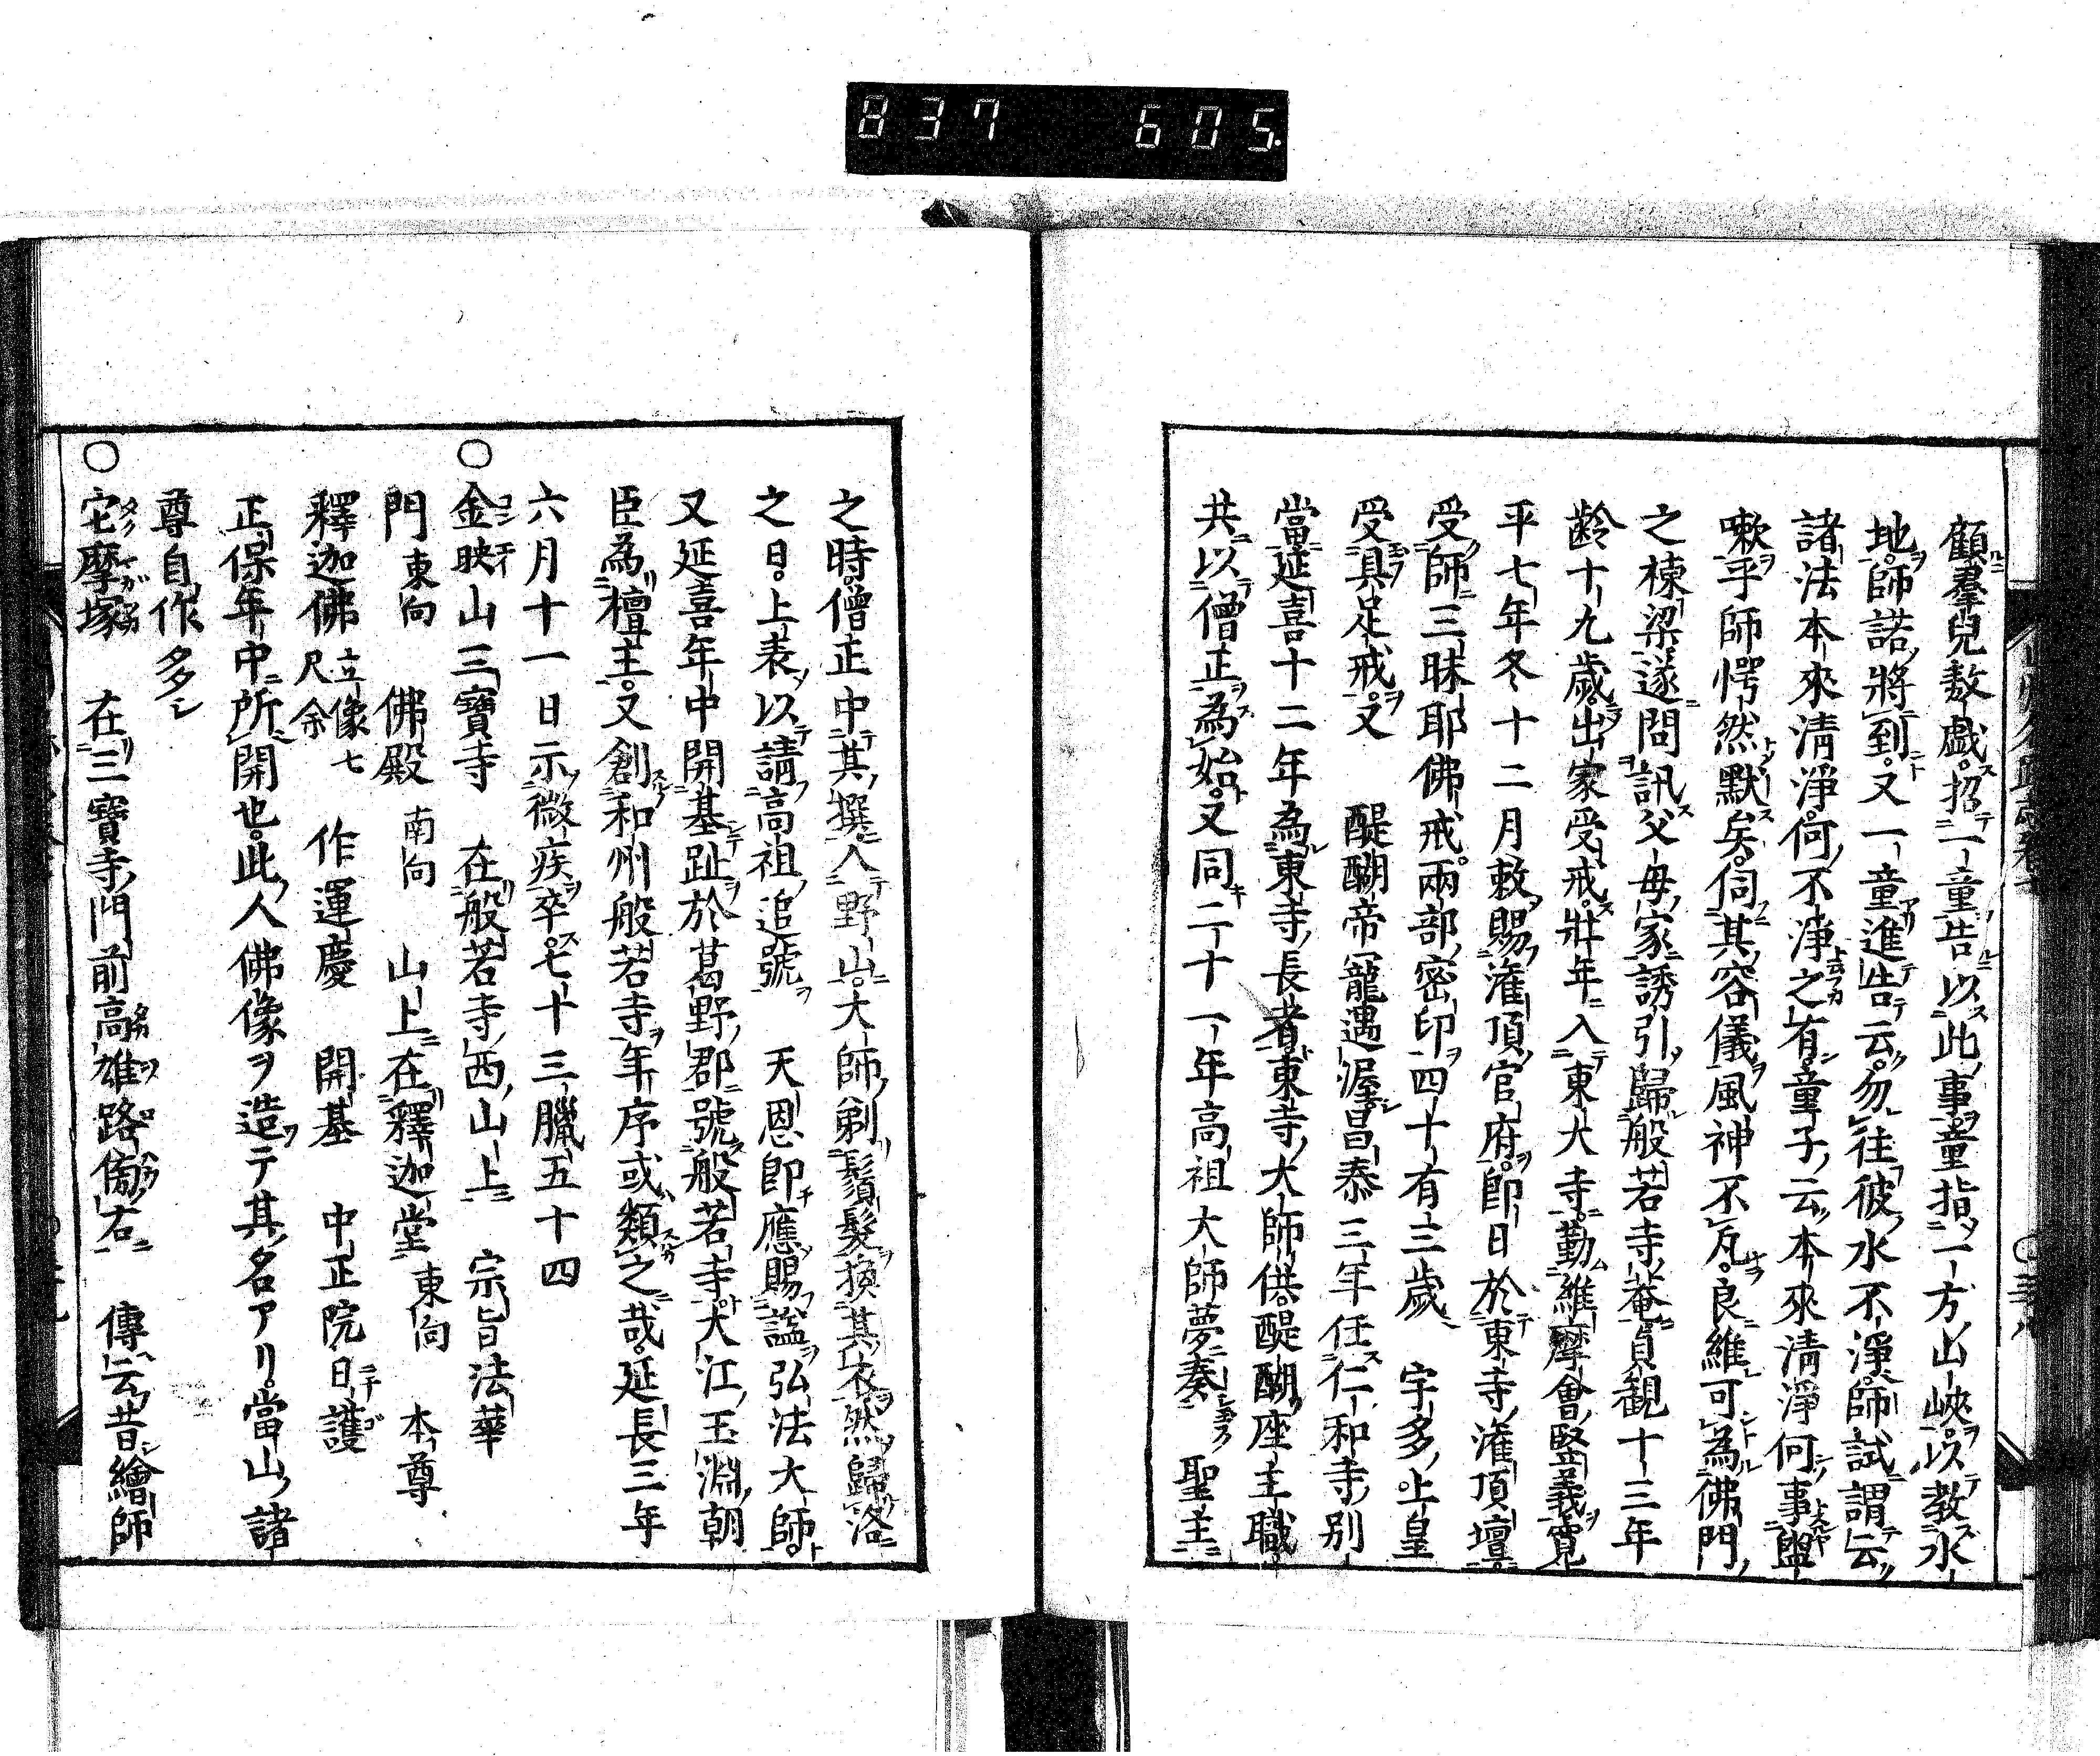 837 605.
顧羣兒敖戲招一童告以此事童指一方山峽以教水
地師諾將到又一童進告云勿往彼水不淨師試謂云
諸法本來清淨何不淨之有童子云本來清淨何事盥
嗽乎師愕然默矣伺其容儀風神不凡良維可為佛門
之棟梁遂問訊父母家誘引歸般若寺菴貞観十三年
齡十九歲出家受戒壯年入東大寺勤維摩會竪義寬
平七年冬十二月敕賜潅頂官府即日於東寺潅頂壇
受師三昧耶佛戒兩部密印四十有三歲 宇多上皇
受具足戒又 醍醐帝寵遇渥昌泰三年任仁和寺別
當延喜十二年為東寺長者東寺大師供醍醐座主職
共以僧正為始又同二十一年高祖大師夢奏 聖主
之時僧正中其撰入野山大師剃鬚髮換其衣然歸洛
之日上表以請高祖追號 天恩即應賜謚弘法大師
又延喜年中開基趾於葛野郡號般若寺大江玉淵朝
臣為檀主又創和州般若寺年序或類之哉延長三年
六月十一日示微疾卒七十三臘五十四
○金映山三寶寺 在般若寺西山上 宗旨法華
門東向 佛殿南向 山上在釋迦堂東向 本尊
釋迦佛立像七尺余 作運慶 開基 中正院日護
正保年中所開也此人佛像ヲ造テ其名アリ當山諸
尊自作多シ
○宅摩塚 在三寶寺門前高雄路傍右 傳云昔繪師